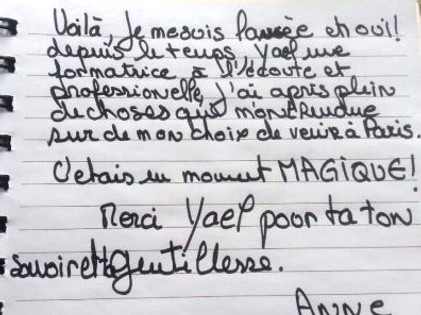 Voilà, je me suis lancée eh oui!
depuis le temps, Yael une
formatrice à l'écoute et
professionelle, j'ai apris plein
de choses qui m'ont rendue
sur de mon choix de venir à Paris.
C'etais un moment MAGIQUE!
Merci Yael pour ta ton
savoir et ta gentillesse.
ANNE